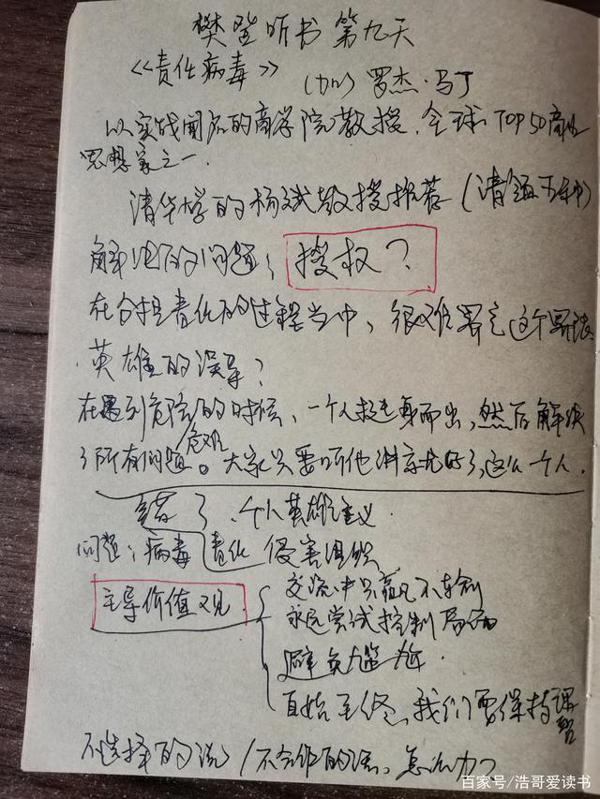 樊登听书 第九天
《责任病毒》 (加) 罗杰·马丁
以实战闻名的商学院教授,全球TOP50商业
思想家之一.
清华大学的杨斌教授推荐(清华
解决的问题; 授权?
在分担责任的过程当中,很难界定这个界限
英雄的误导?
在遇到危险的时候,一个人挺身而出,然后解决
了所有问题 危难。大家只要听他讲就好了,这么一个人.
错了,个人英雄主义.
问题;病毒 责任 侵害组织
主导价值观
交流中只赢不输
永远尝试控制局面
避免尴尬.
自始至终,我们要保持理智
不选择的话/不合作的话,怎么办?
百家号/浩哥爱读书